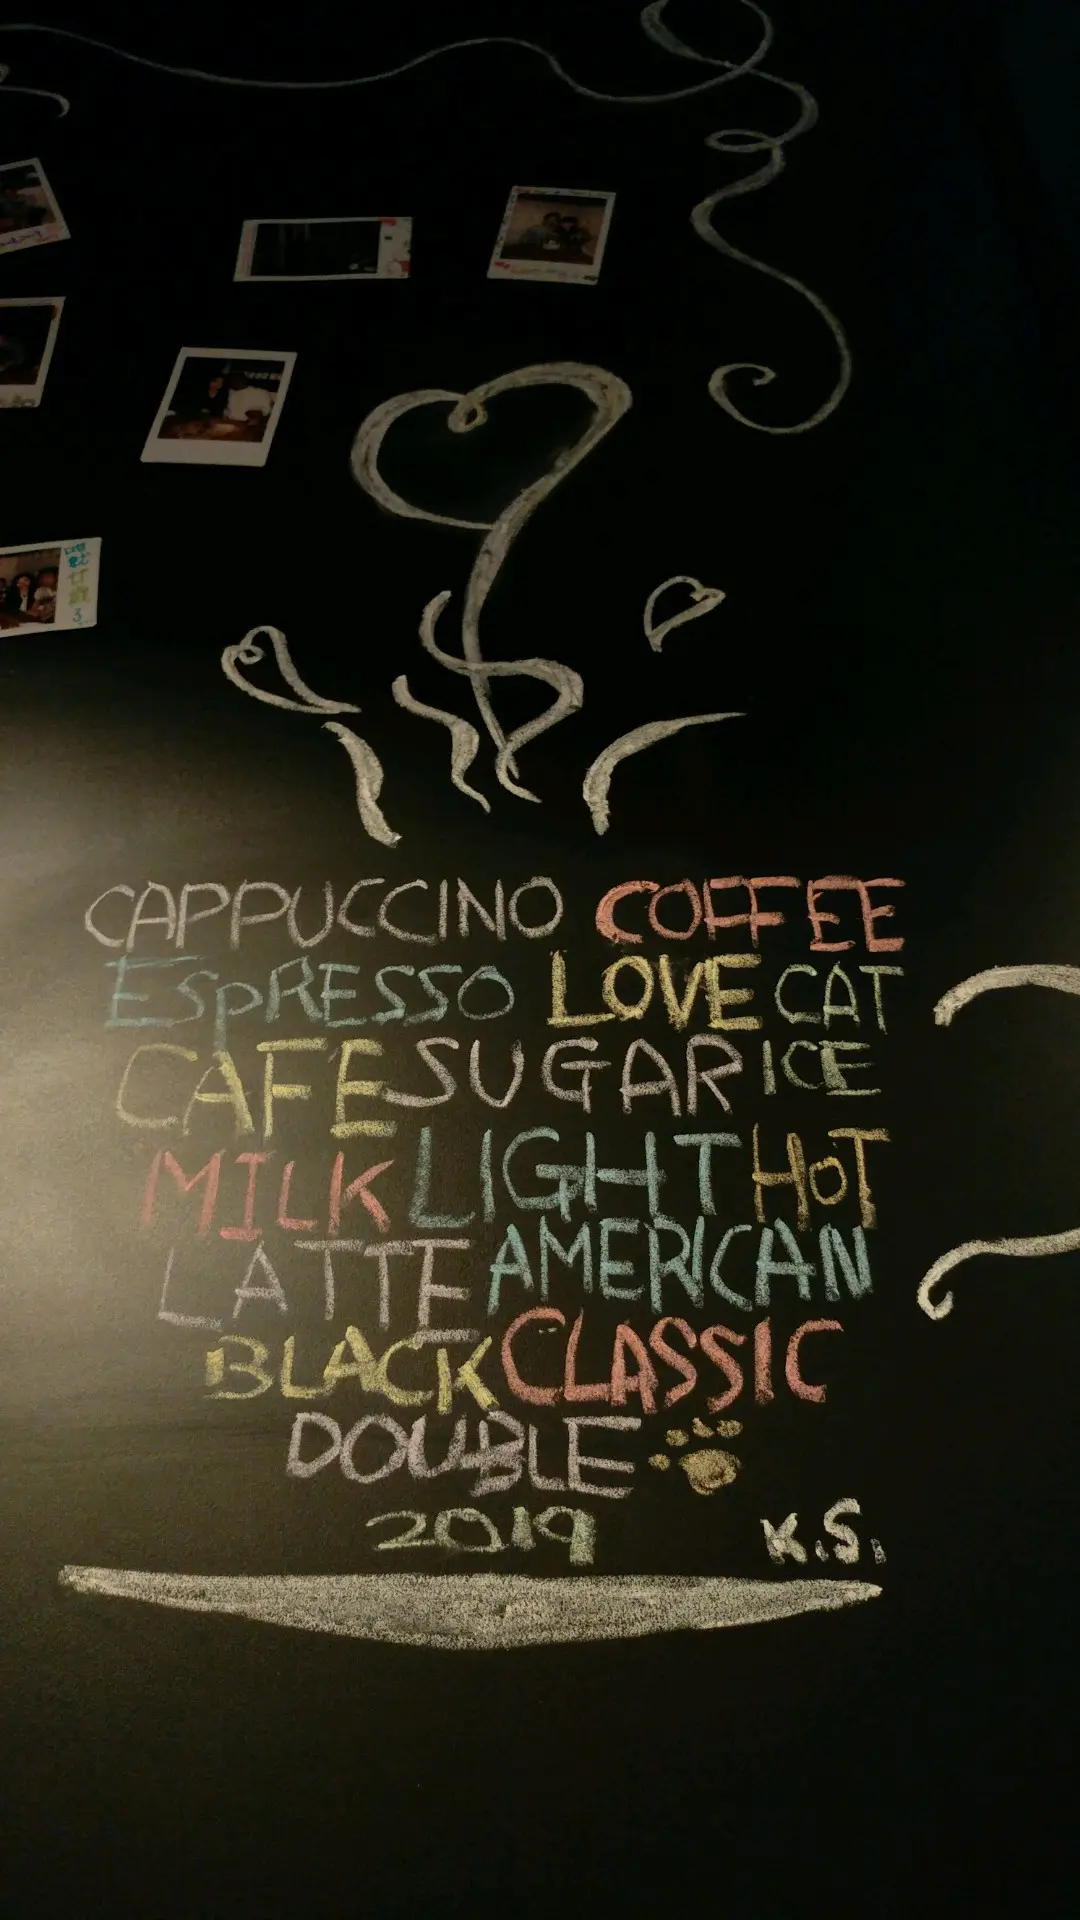 CAPPUCCINO COFFEE
ESPRESSO LOVE CAT
CAFE SUGAR ICE
MILK LIGHT HOT
LATTE AMERICAN
BLACK CLASSIC
DOUBLE
2019 K.S.